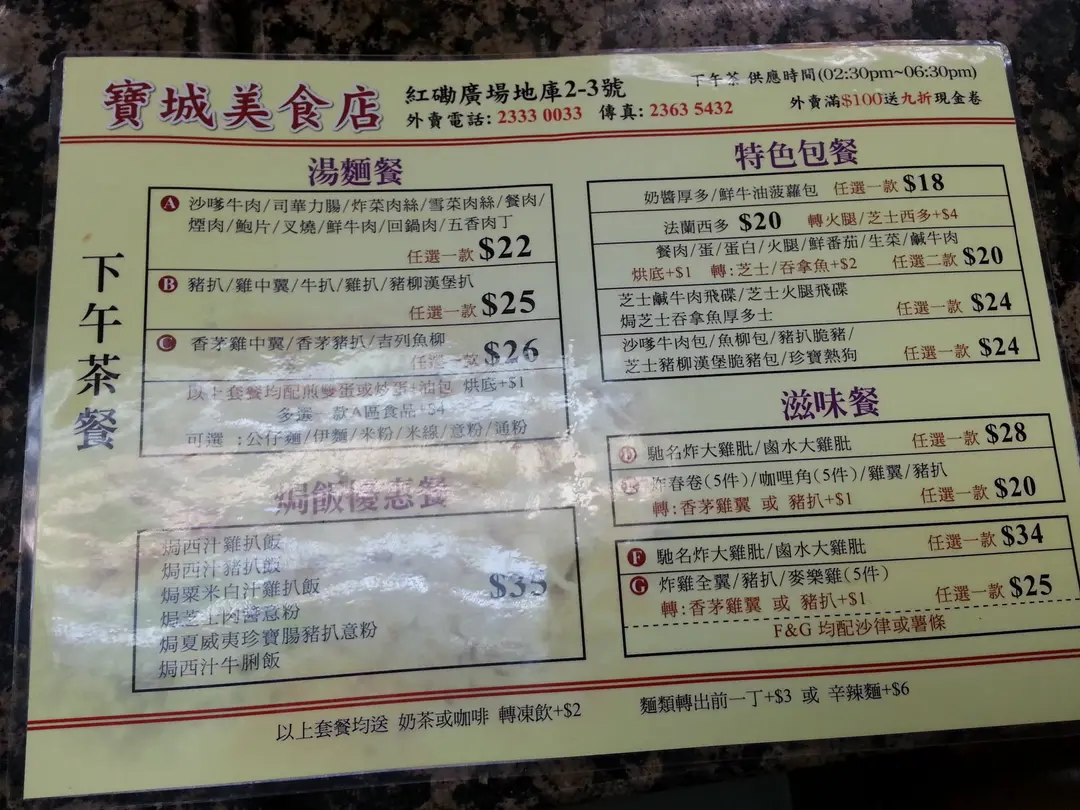 寶城美食店
紅磡廣場地庫2-3號
外賣電話: 2333 0033 傳真: 2363 5432
下午茶 供應時間(02:30pm~06:30pm)
外賣滿$100送九折現金卷
下午茶餐
湯麵餐
A 沙嗲牛肉/司華力腸/炸菜肉絲/雪菜肉絲/餐肉/
煙肉/鮑片/叉燒/鮮牛肉/回鍋肉/五香肉丁
任選一款 $22
B 豬扒/雞中翼/牛扒/雞扒/豬柳漢堡扒
任選一款 $25
C 香茅雞中翼/香茅豬扒/吉列魚柳
任選一款 $26
以上套餐均配煎雙蛋或炒蛋+油包 烘底+$1
多選一款A區食品+$4
可選 :公仔麵/伊麵/米粉/米線/意粉/通粉
焗飯優惠餐
焗西汁雞扒飯
焗西汁豬扒飯
焗粟米白汁雞扒飯
焗芝士肉醬意粉
焗夏威夷珍寶腸豬扒意粉
焗西汁牛脷飯
$35
特色包餐
奶醬厚多/鮮牛油菠蘿包 任選一款 $18
法蘭西多 $20 轉火腿/芝士西多+$4
餐肉/蛋/蛋白/火腿/鮮番茄/生菜/鹹牛肉
烘底+$1 轉:芝士/吞拿魚+$2 任選二款 $20
芝士鹹牛肉飛碟/芝士火腿飛碟
焗芝士吞拿魚厚多士 任選一款 $24
沙嗲牛肉包/魚柳包/豬扒脆豬/
芝士豬柳漢堡脆豬包/珍寶熱狗 任選一款 $24
滋味餐
D 馳名炸大雞肶/鹵水大雞肶 任選一款 $28
E 炸春卷(5件)/咖哩角(5件)/雞翼/豬扒
轉:香茅雞翼 或 豬扒+$1 任選一款 $20
F 馳名炸大雞肶/鹵水大雞肶 任選一款 $34
G 炸雞全翼/豬扒/麥樂雞(5件)
轉:香茅雞翼 或 豬扒+$1 任選一款 $25
F&G 均配沙律或薯條
以上套餐均送 奶茶或咖啡 轉凍飲+$2
麵類轉出前一丁+$3 或 辛辣麵+$6